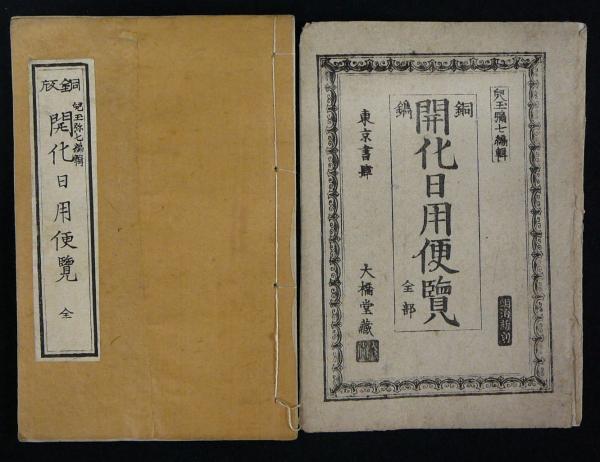 銅鐫
兒玉弥七編輯
開化日用便覽
全
兒玉彌七編輯
銅鐫
開化日用便覽
全部
東京書肆
大橋堂藏
明治新刻